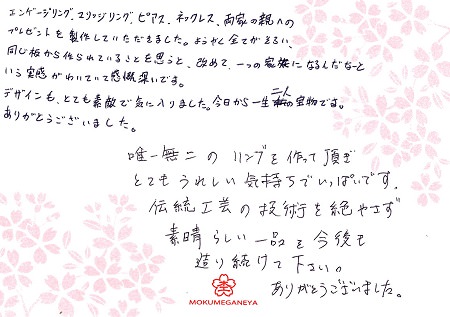 エンゲージリング、マリッジリング、ピアス、ネックレス、両家の親への
プレゼントを製作していただきました。ようやく全てがそろい、
同じ板から作られていることを思うと、改めて、一つの家族になるんだなーと
いう実感がわいていて感慨深いです。
デザインも、とても素敵で気に入りました。今日から一生二人の宝物です。
ありがとうございました。
唯一無二のリングを作って頂き
とてもうれしい気持ちでいっぱいです。
伝統工芸の技術を絶やさず
素晴らしい一品を今後も
造り続けて下さい。
ありがとうございました。
MOKUMEGANEYA